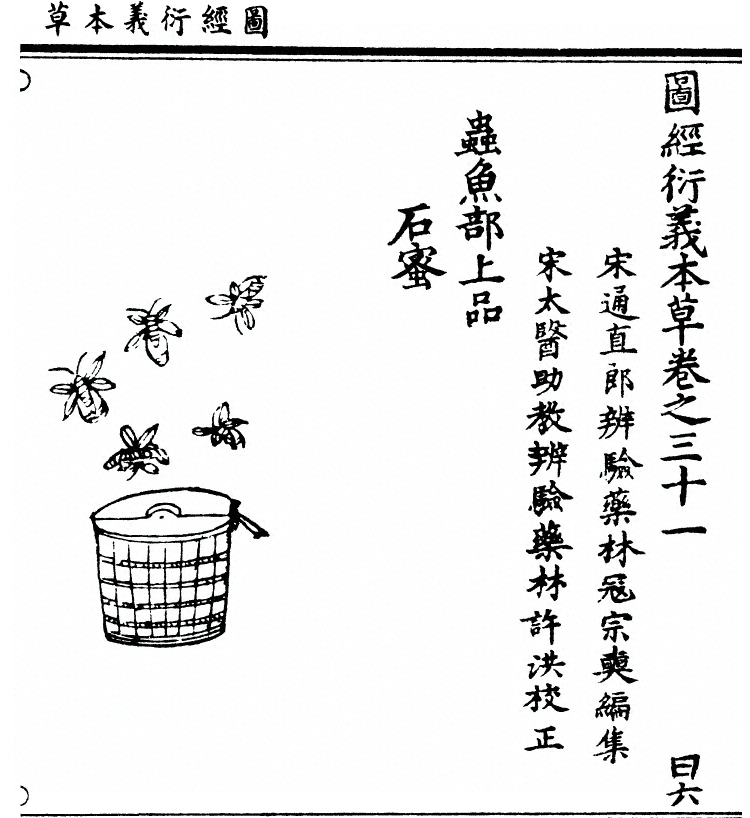 圖經衍義本草
圖經衍義本草卷之三十一
曰六
宋通直郎辨驗藥材冦宗奭編集
宋太醫助教辨驗藥材許洪校正
蟲魚部上品
石蜜